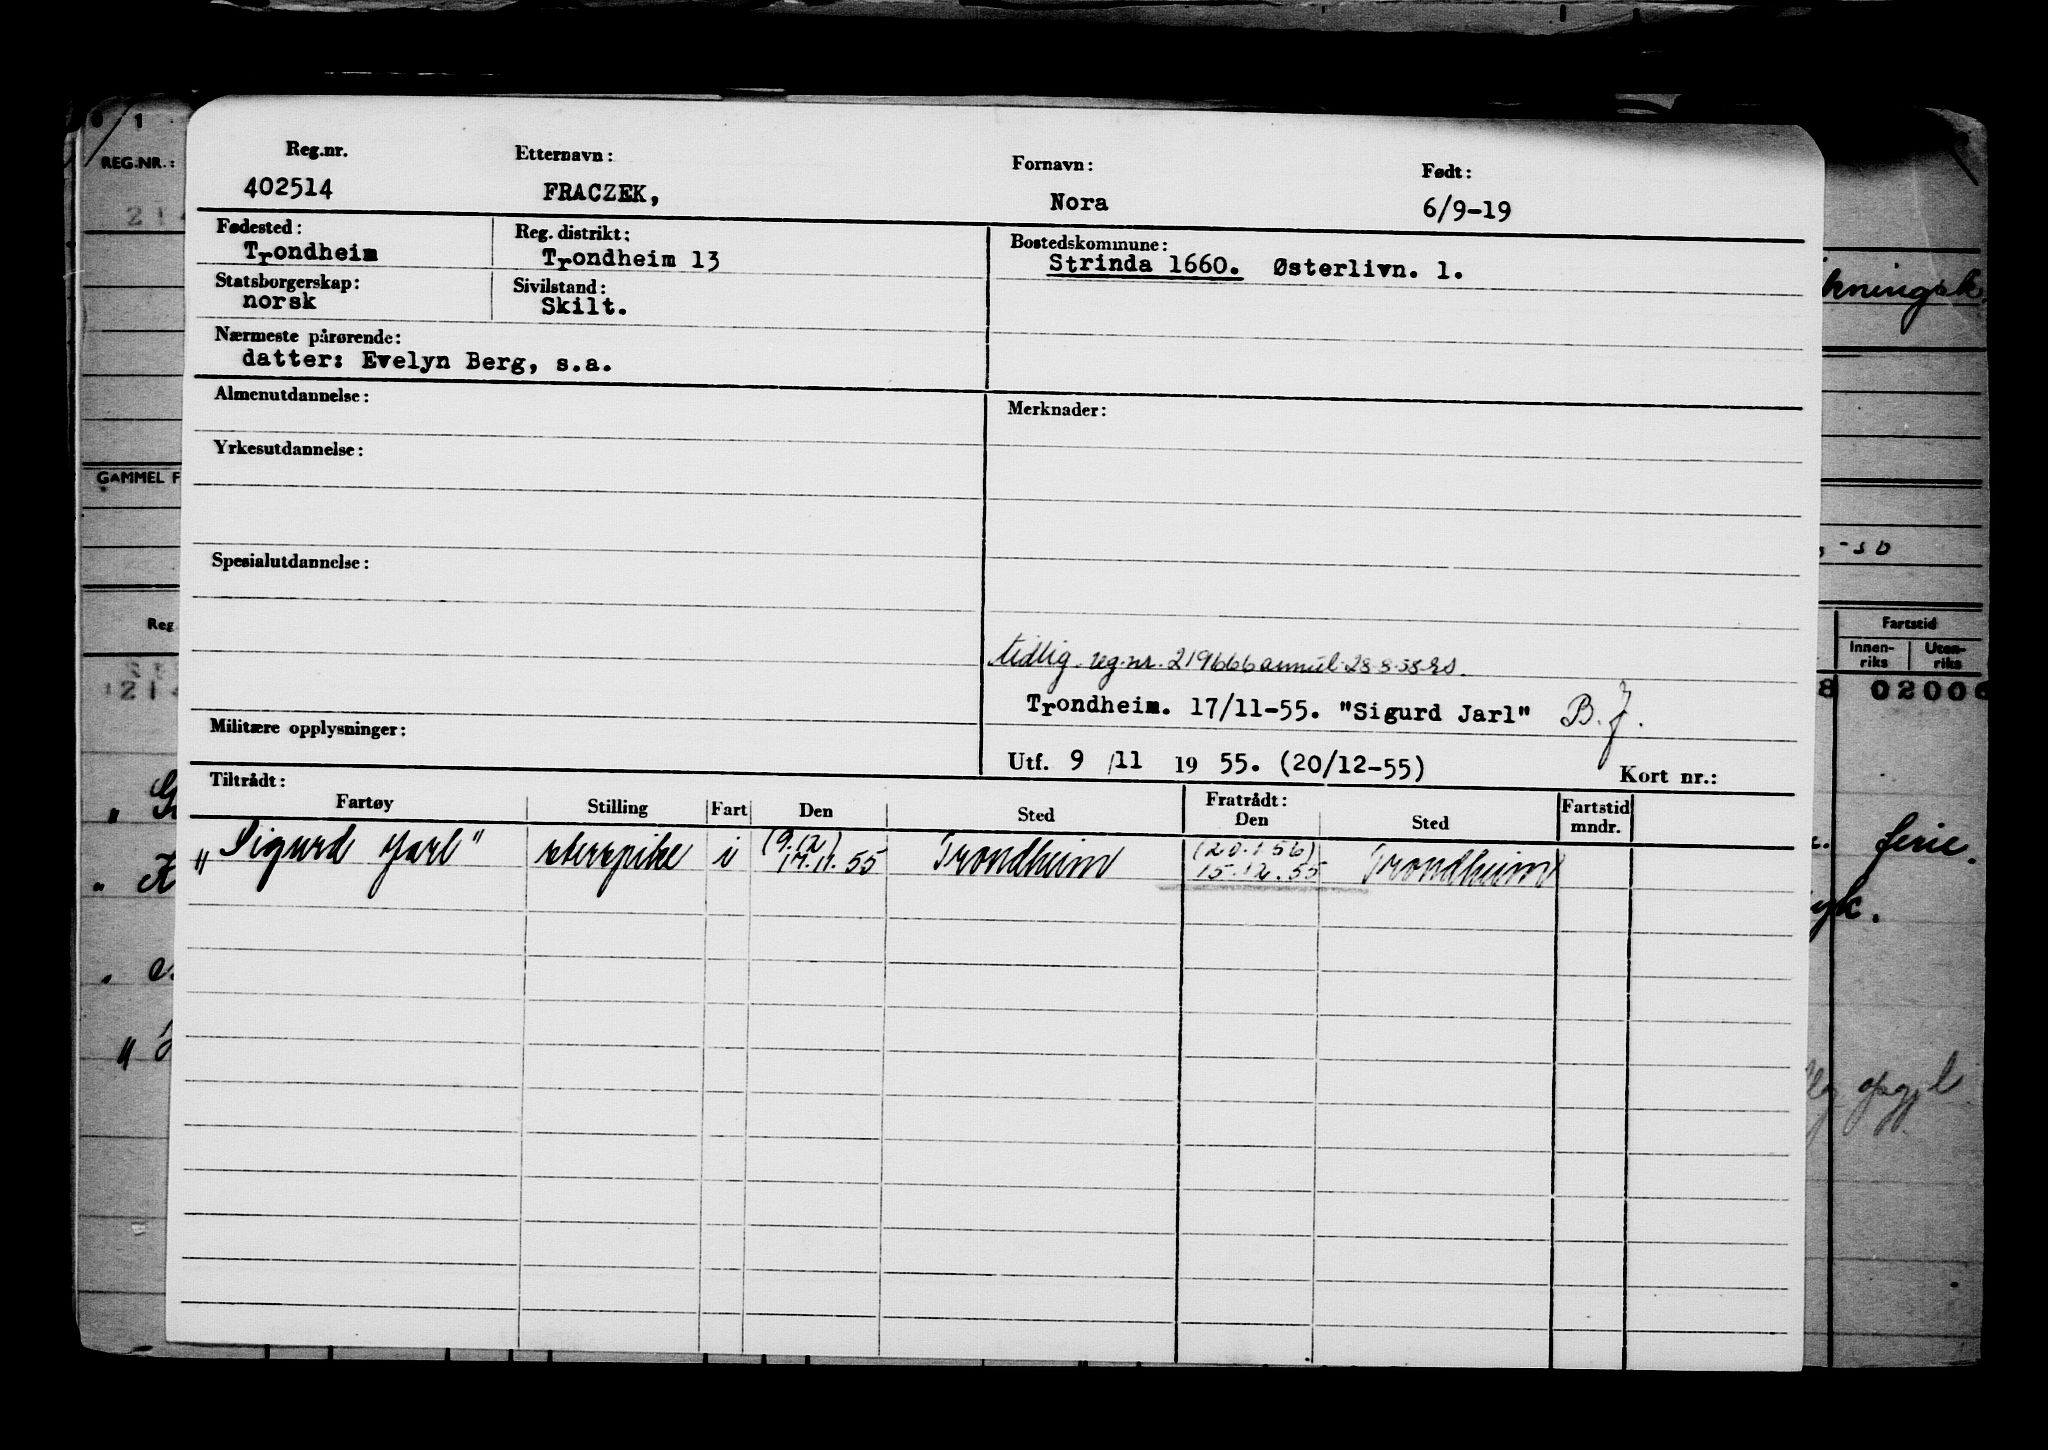 Reg.nr. Etternavn: Fornavn: Født:
402514 FRACZEK, Nora 6/9-19
Fødested: Reg. distrikt: Bostedskommune:
Trondheim Trondheim 13 Strinda 1660. Østerlivn. 1.
Statsborgerskap: Sivilstand:
norsk Skilt.
Nærmeste pårørende:
datter: Evelyn Berg, s.a.
Almenutdannelse: Merknader:
Yrkesutdannelse:
Spesialutdannelse:
tidlig. reg.nr. 219666 annul. 28-8-58 RS.
Trondheim. 17/11-55. "Sigurd Jarl" B.J.
Militære opplysninger:
Utf. 9 /11 19 55. (20/12-55) Kort nr.:
Tiltrådt: Fratrådt:
Fartøy Stilling Fart Den Sted Den Sted Fartstid mndr.
(9.12) (20.1 56)
"Sigurd Jarl" i 17.11.55 Trondheim 15.12.55 Trondheim
REG.NR.:
GAMMEL F
Reg
-50
Fartstid
Innen-riks Uten-riks
8 0200
ferie.